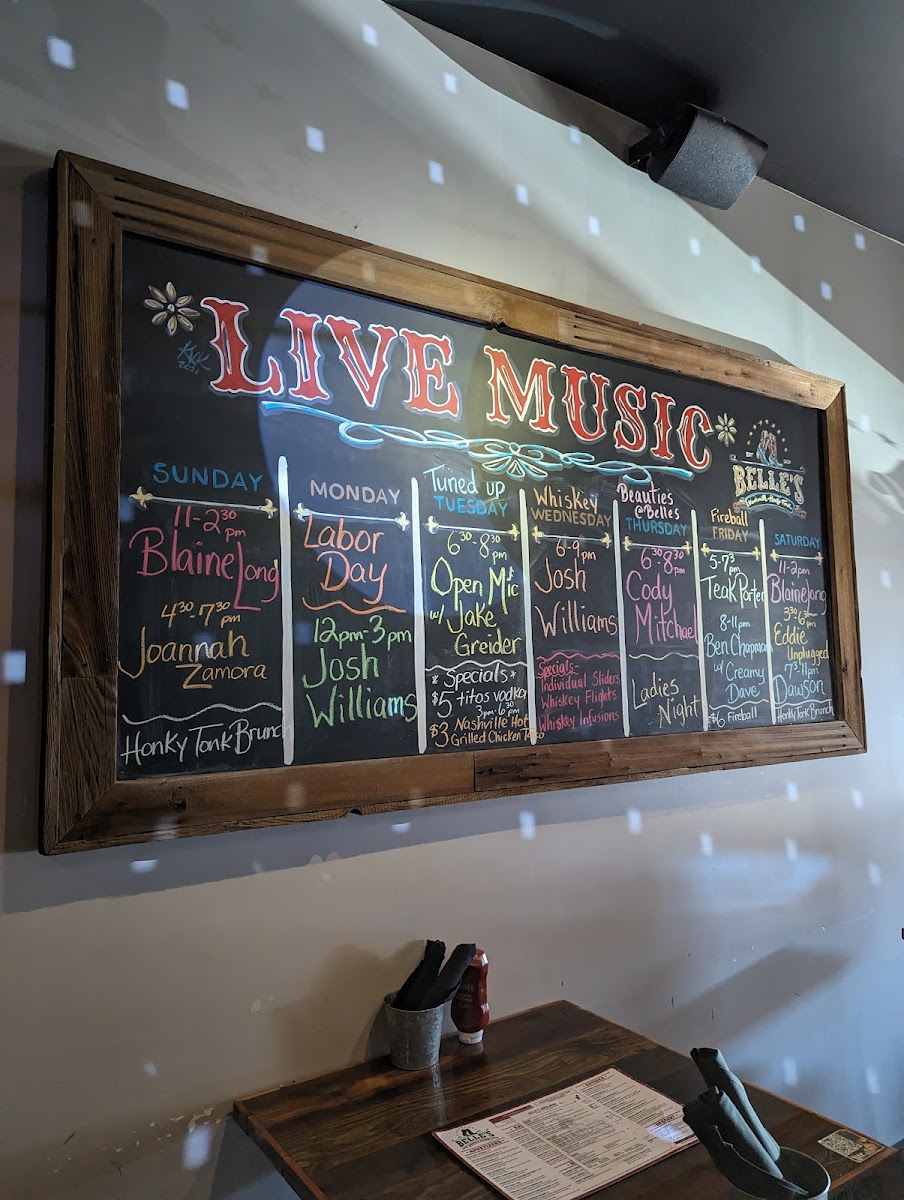 LIVE MUSIC
KKK
2021
BELLE'S
SUNDAY
11-2:30
pm
Blaine Long
4:30-7:30
pm
Joannah
Zamora
Honky Tonk Brunch
MONDAY
Labor
Day
12pm-3pm
Josh
Williams
Tuned up
TUESDAY
6:30-8:30
pm
Open Mic
w/ Jake
Greider
* Specials *
$5 titos vodka
3pm-6:30
pm
$3 Nashville Hot
Grilled Chicken Taco
Whiskey
WEDNESDAY
6-9pm
Josh
Williams
Specials-
Individual Sliders
Whiskey Flights
Whiskey Infusions
Beauties
@Belles
THURSDAY
6:30-8:30
pm
Cody
Mitchael
Ladies
Night
Fireball
FRIDAY
5-7:30
pm
Teak Porter
8-11pm
Ben Chapman
w/ Creamy
Dave
$6 Fireball
SATURDAY
11-2pm
Blaine Long
3:30-6:30
pm
Eddie
Unplugged
7:30-11pm
Dawson
Honky Tonk Brunch
BELLE'S